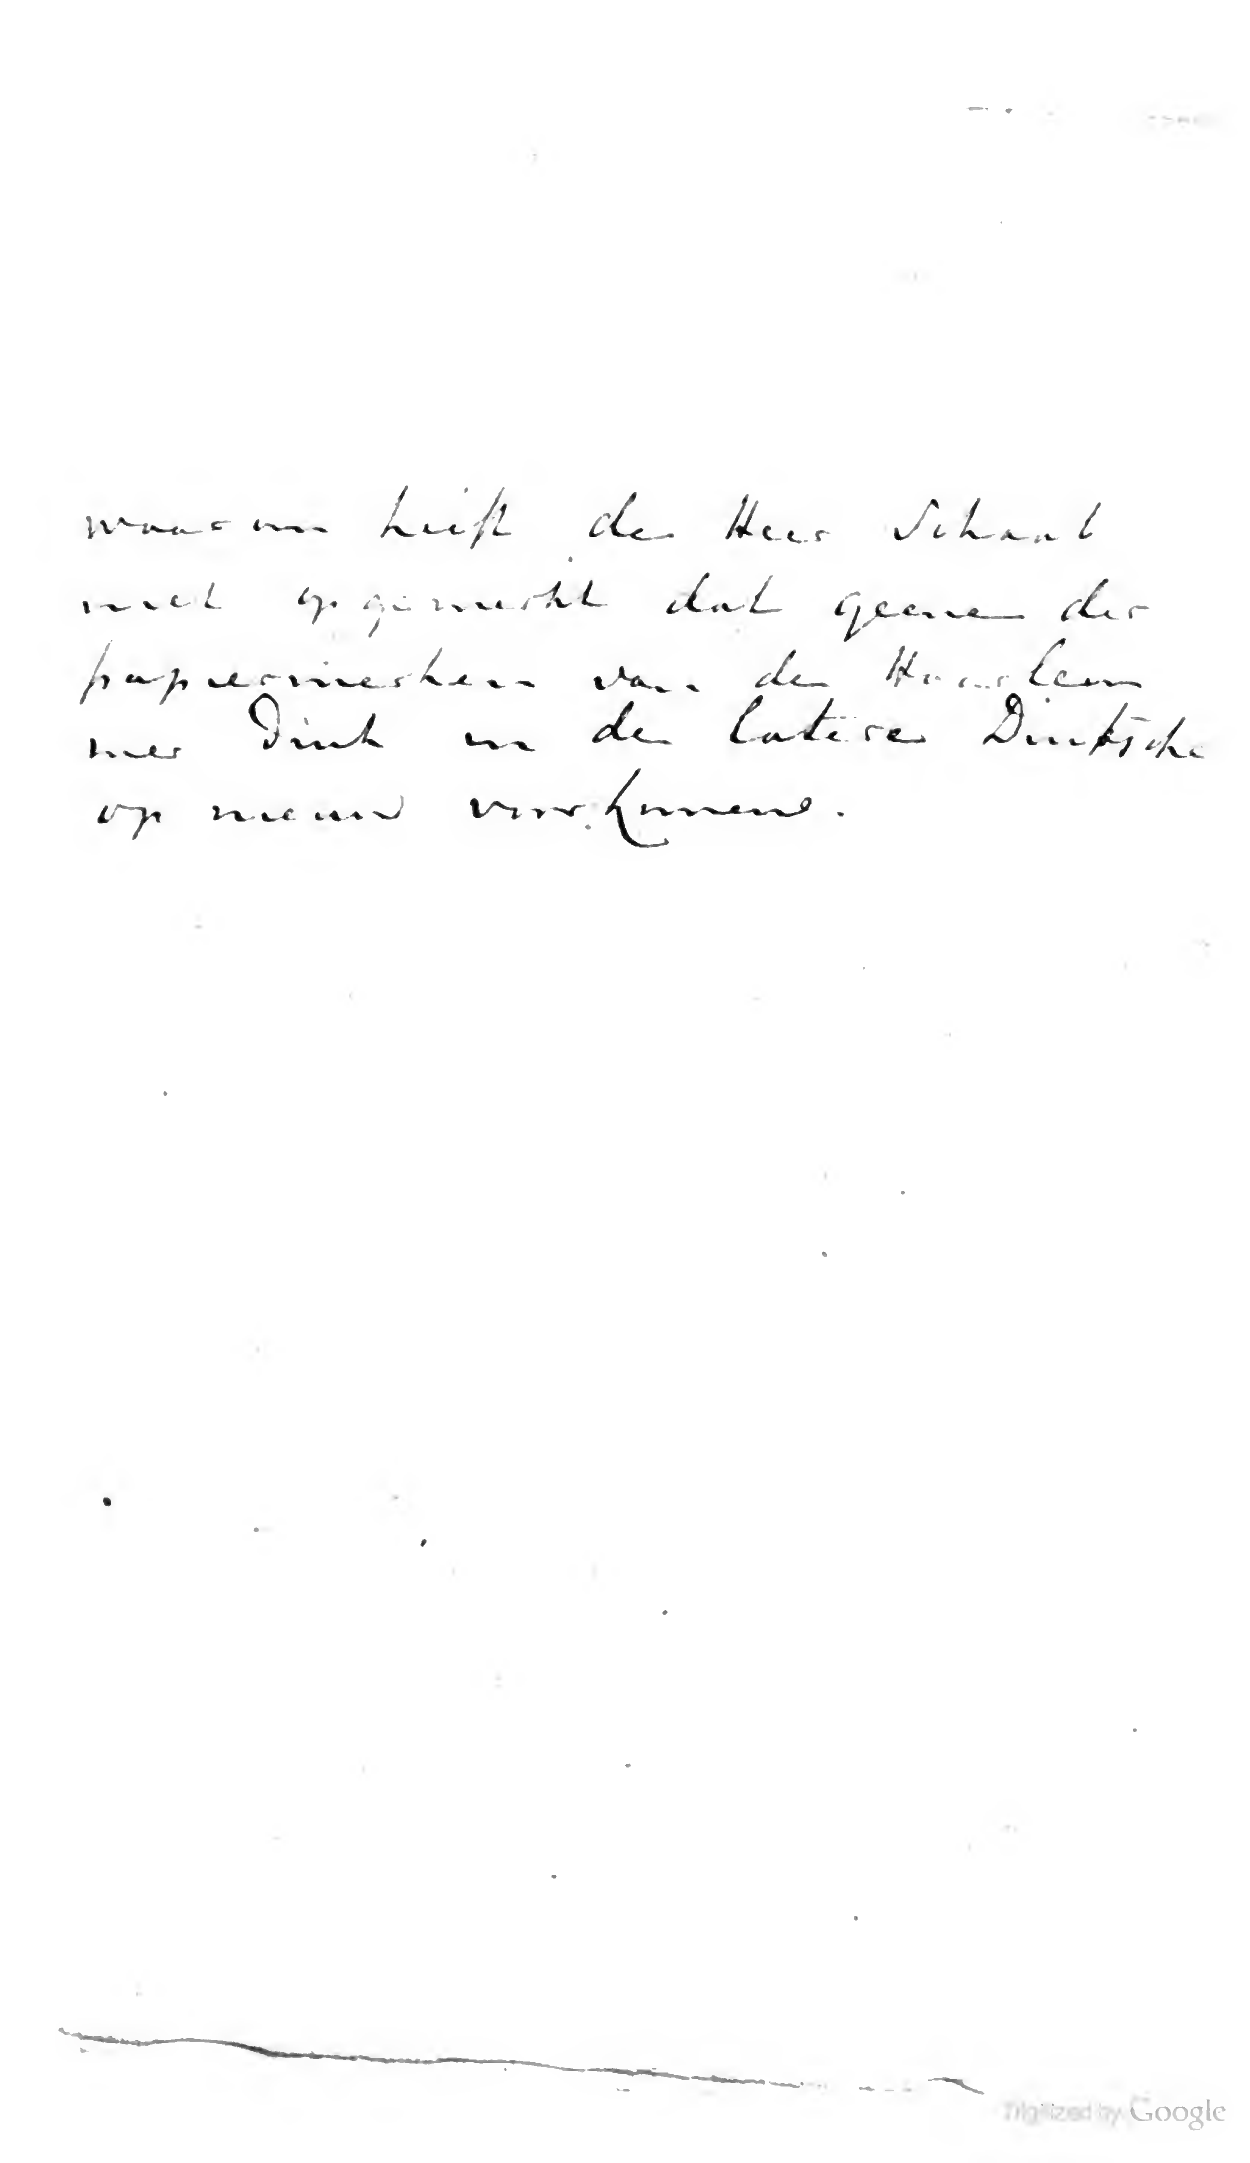 waarom heeft de Heer Schaab
niet opgemerkt dat geene der
papiermerken van de Haarlem
mer Druk in de latere Duitsche
op nieuw voorkomen.
Digitized by Google